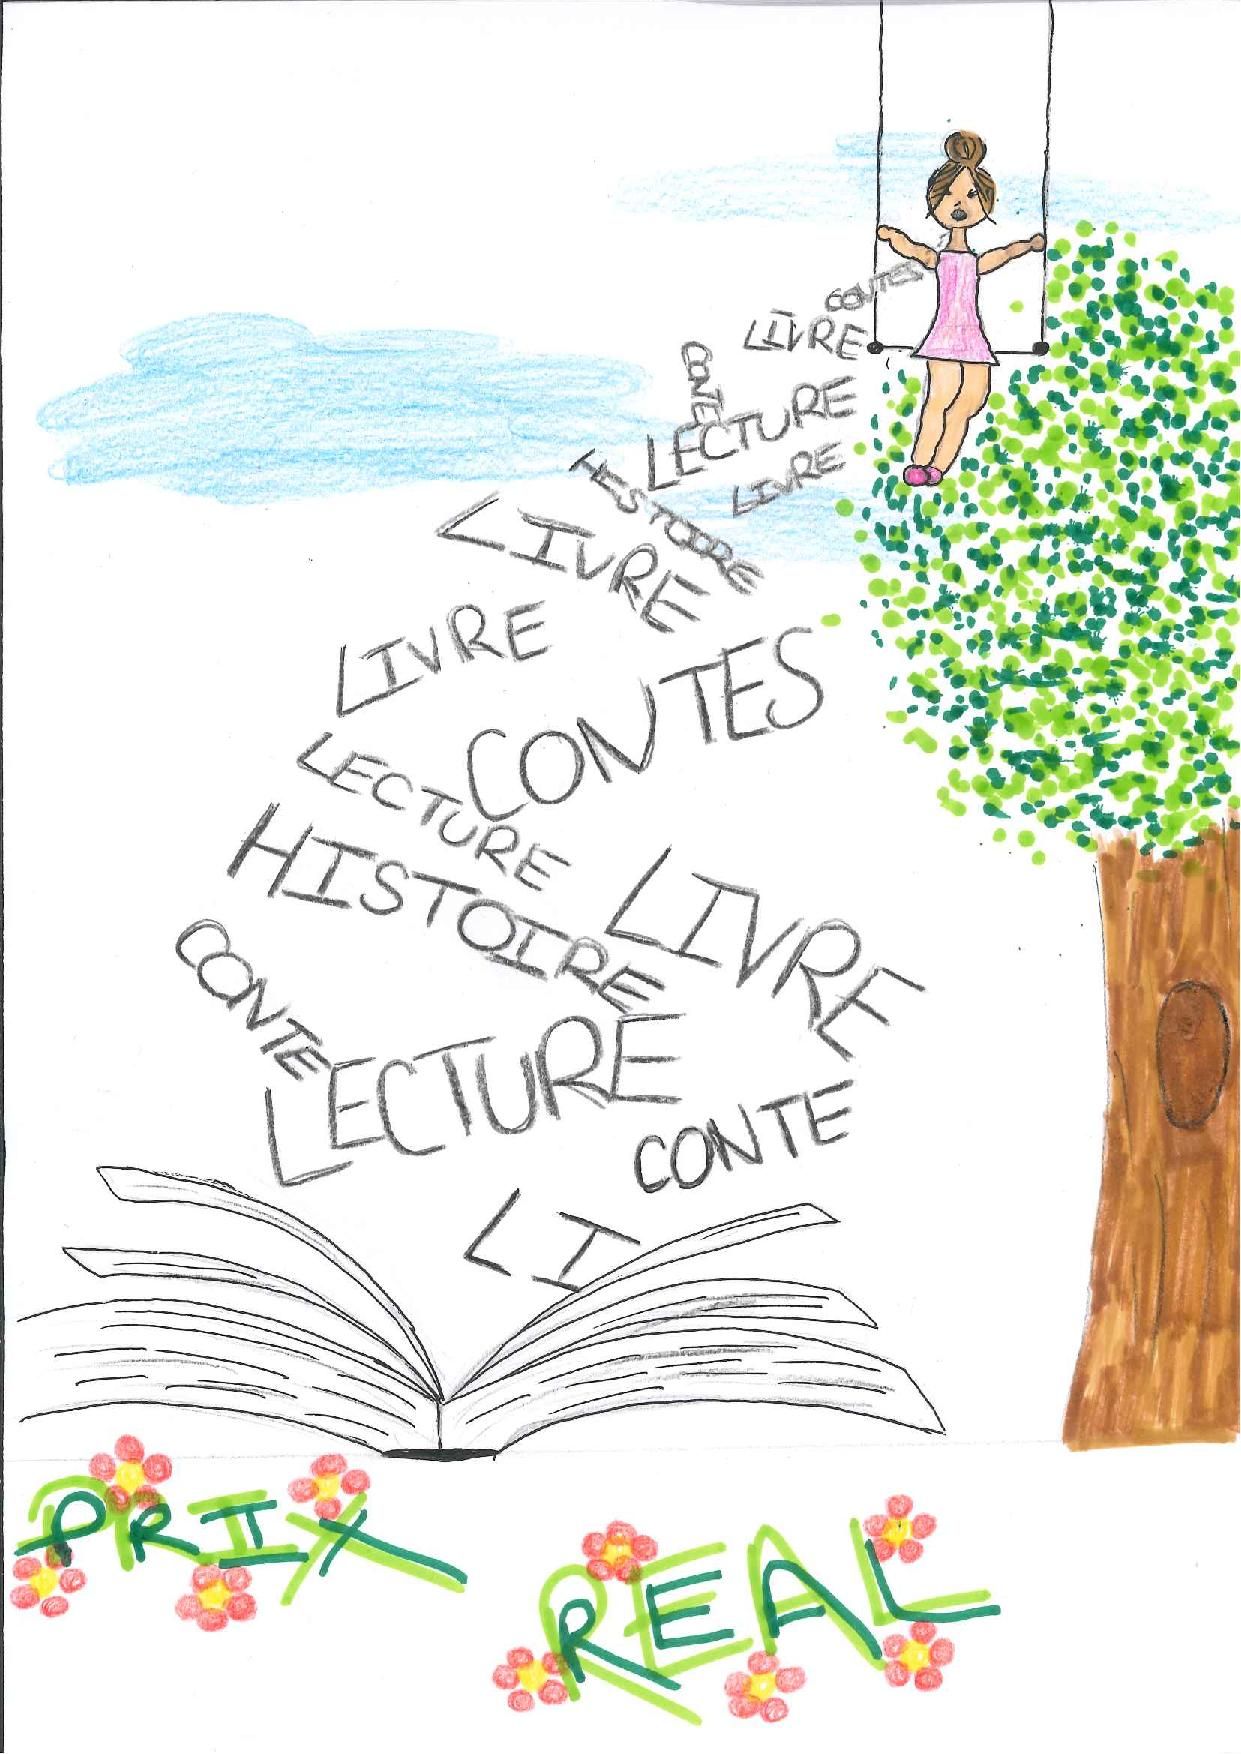 CONTES
LIVRE
CONTE
LECTURE
LIVRE
HISTOIRE
LIVRE
LIVRE
CONTES
LECTURE
HISTOIRE
LIVRE
CONTE
LECTURE
CONTE
LI
PRIX
REAL